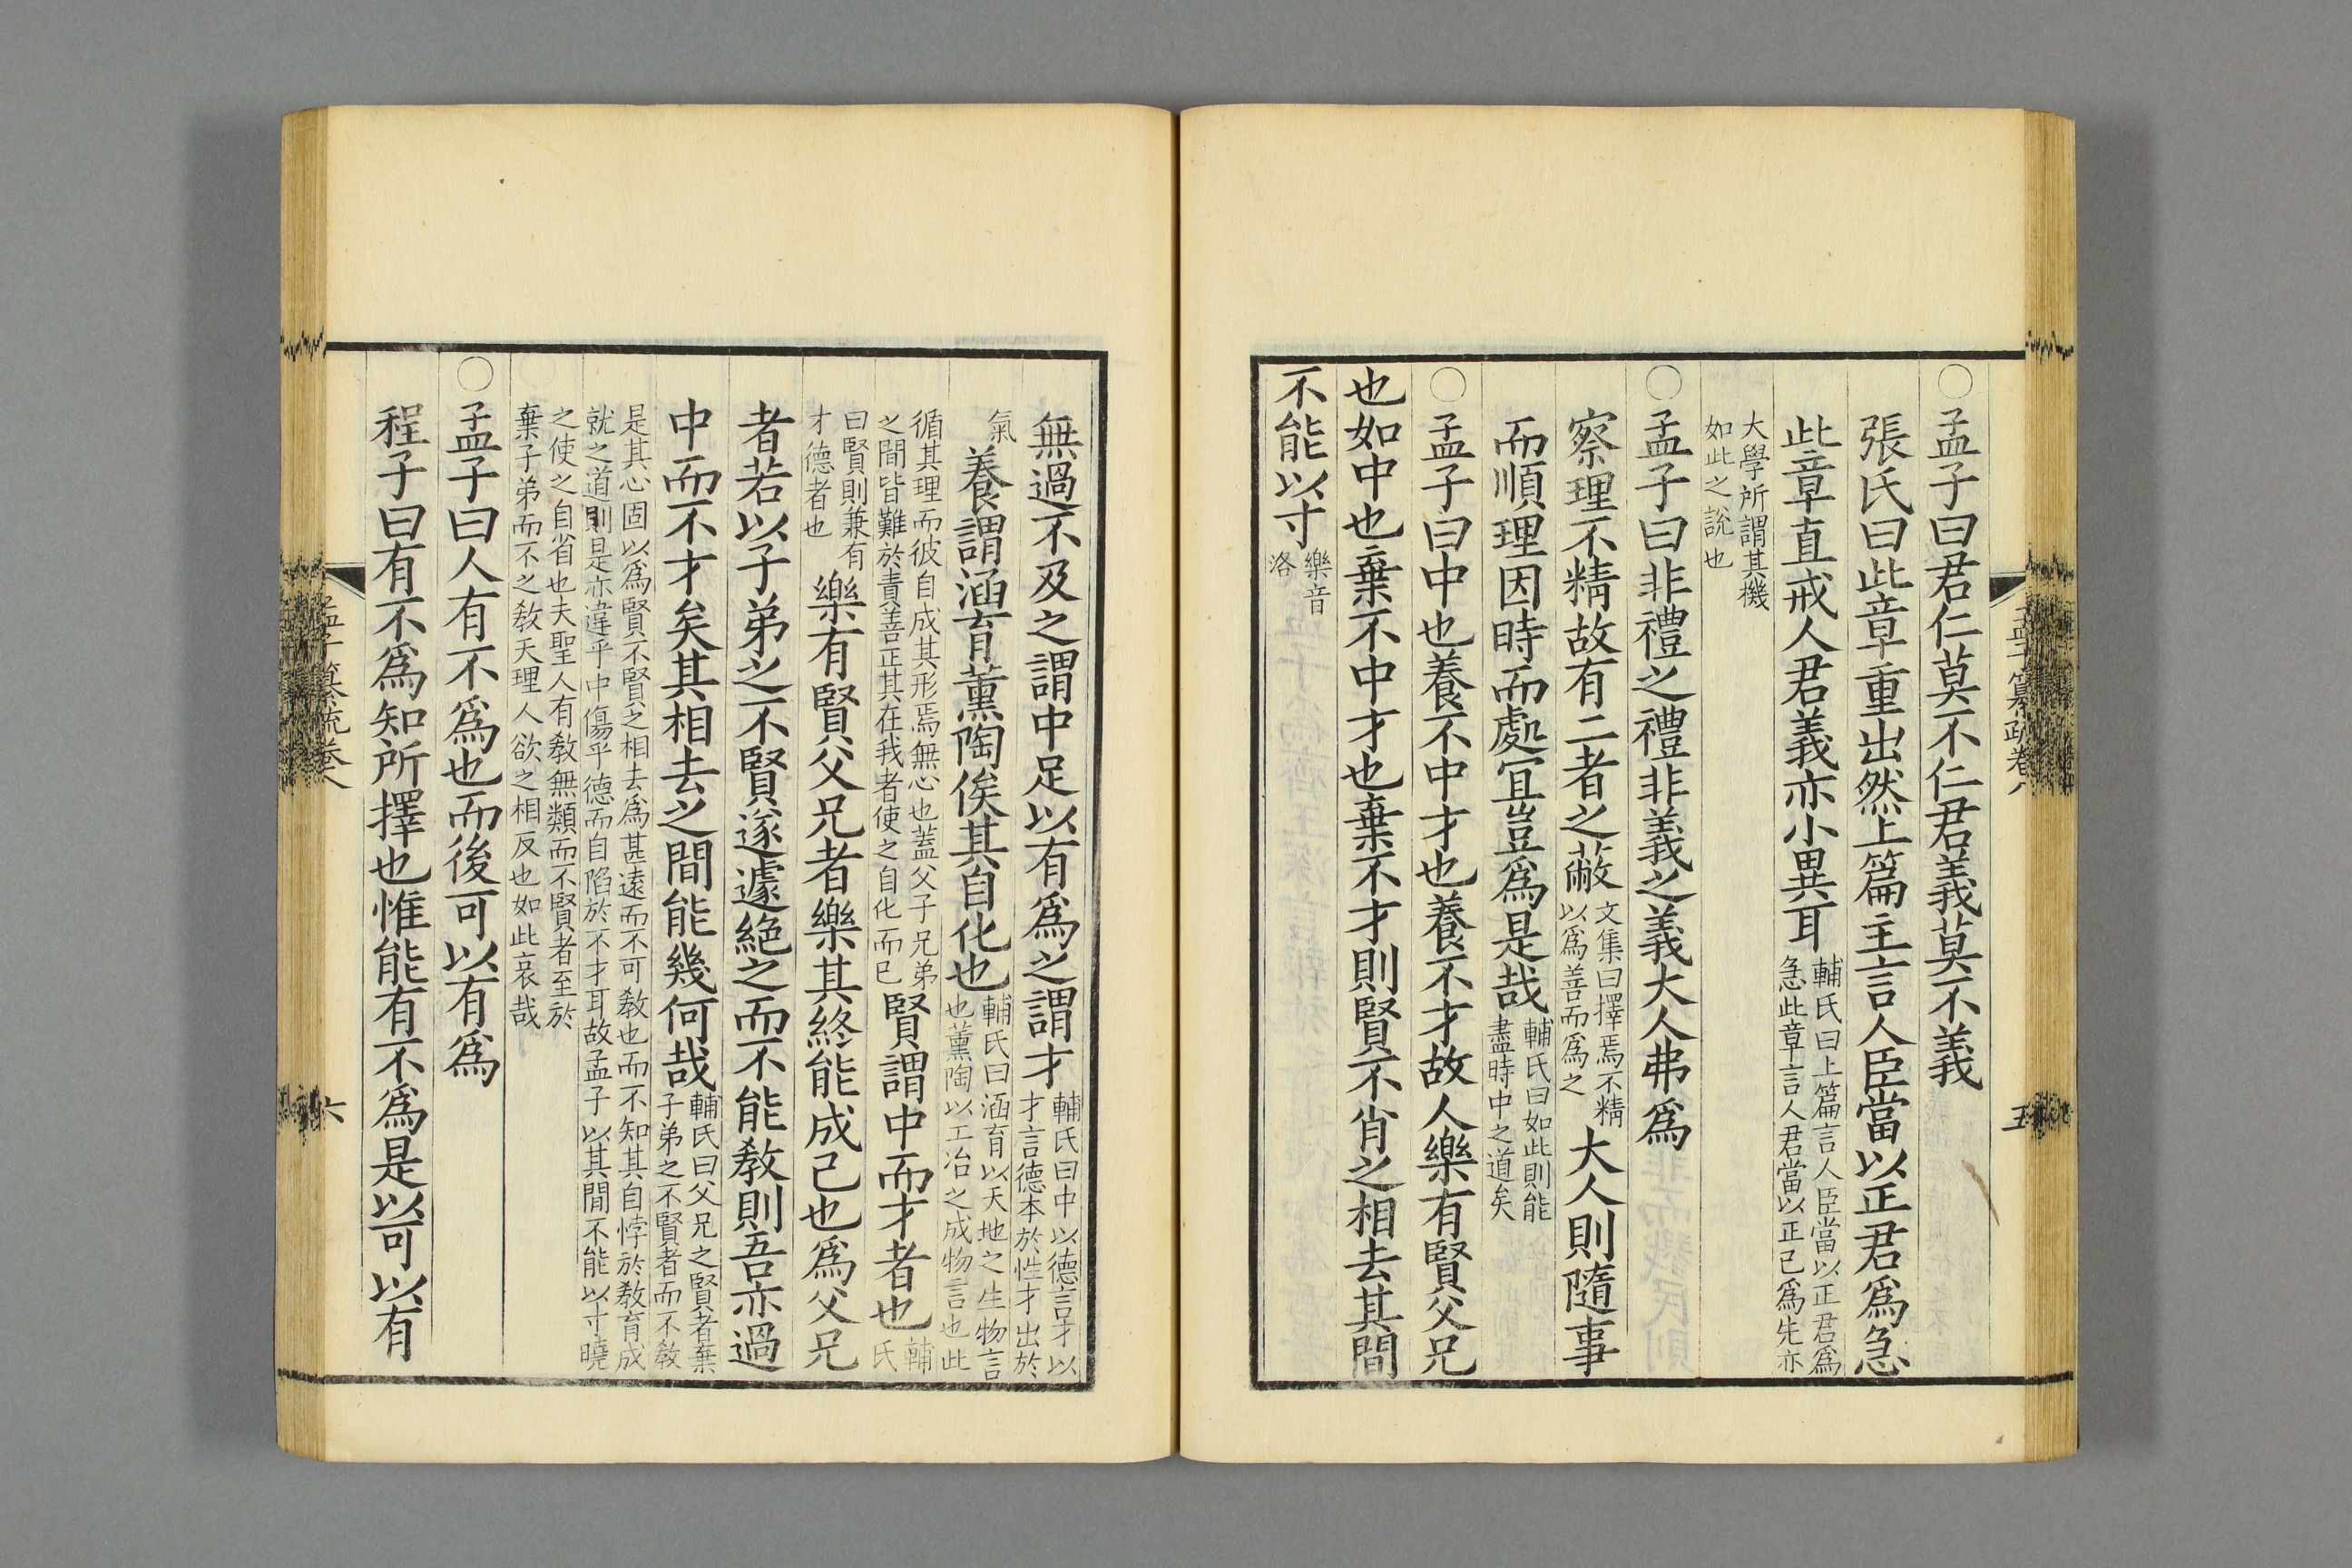 ○孟子曰君仁莫不仁君義莫不義
張氏曰此章重出然上篇主言人臣當以正君爲急
此章直戒人君義亦小異耳
輔氏曰上篇言人臣當以正君爲
急此章言人君當以正己爲先亦
大學所謂其機
如此之說也
○孟子曰非禮之禮非義之義大人弗爲
察理不精故有二者之蔽
文集曰擇焉不精
以爲善而爲之
大人則隨事
而順理因時而處宜豈爲是哉
輔氏曰如此則能
盡時中之道矣
○孟子曰中也養不中才也養不才故人樂有賢父兄
也如中也棄不中才也棄不才則賢不肖之相去其間
不能以寸
樂音
洛
孟子纂疏卷八
五
無過不及之謂中足以有爲之謂才
輔氏曰中以德言才以
才言德本於性才出於
氣
養謂涵育薰陶俟其自化也
輔氏曰涵育以天地之生物言
也薰陶以工冶之成物言也此
循其理而彼自成其形焉無心也蓋父子兄弟
之間皆難於責善正其在我者使之自化而已
賢謂中而才者也
輔
氏
曰賢則兼有
才德者也
樂有賢父兄者樂其終能成己也爲父兄
者若以子弟之不賢遂遽絕之而不能敎則吾亦過
中而不才矣其相去之間能幾何哉
輔氏曰父兄之賢者棄
子弟之不賢者而不敎
是其心固以爲賢不賢之相去爲甚遠而不可敎也而不知其自悖於敎育成
就之道則是亦違乎中傷乎德而自陷於不才耳故孟子以其間不能以寸曉
之使之自省也夫聖人有敎無類而不賢者至於
棄子弟而不之敎天理人欲之相反也如此哀哉
○孟子曰人有不爲也而後可以有爲
程子曰有不爲知所擇也惟能有不爲是以可以有
孟子纂疏卷八
六